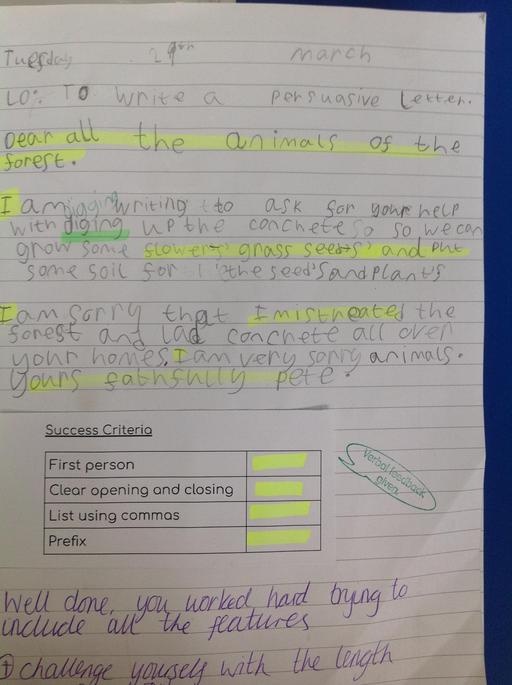 Tuesday 29th march
LO: To write a persuasive letter.
Dear all the animals of the
forest.
I am writing to ask for your help
digging
with diging up the concrete so so we can
grow some flowers, grass seeds, and put
some soil for the seeds and plants
I am sorry that I mistreated the
forest and lad concrete all over
your homes. I am very sorry animals.
Yours faithfully pete.
Success Criteria
First person
Clear opening and closing
List using commas
Prefix
Verbal feedback
given
Well done, you worked hard trying to
include all the features
challenge yourself with the length